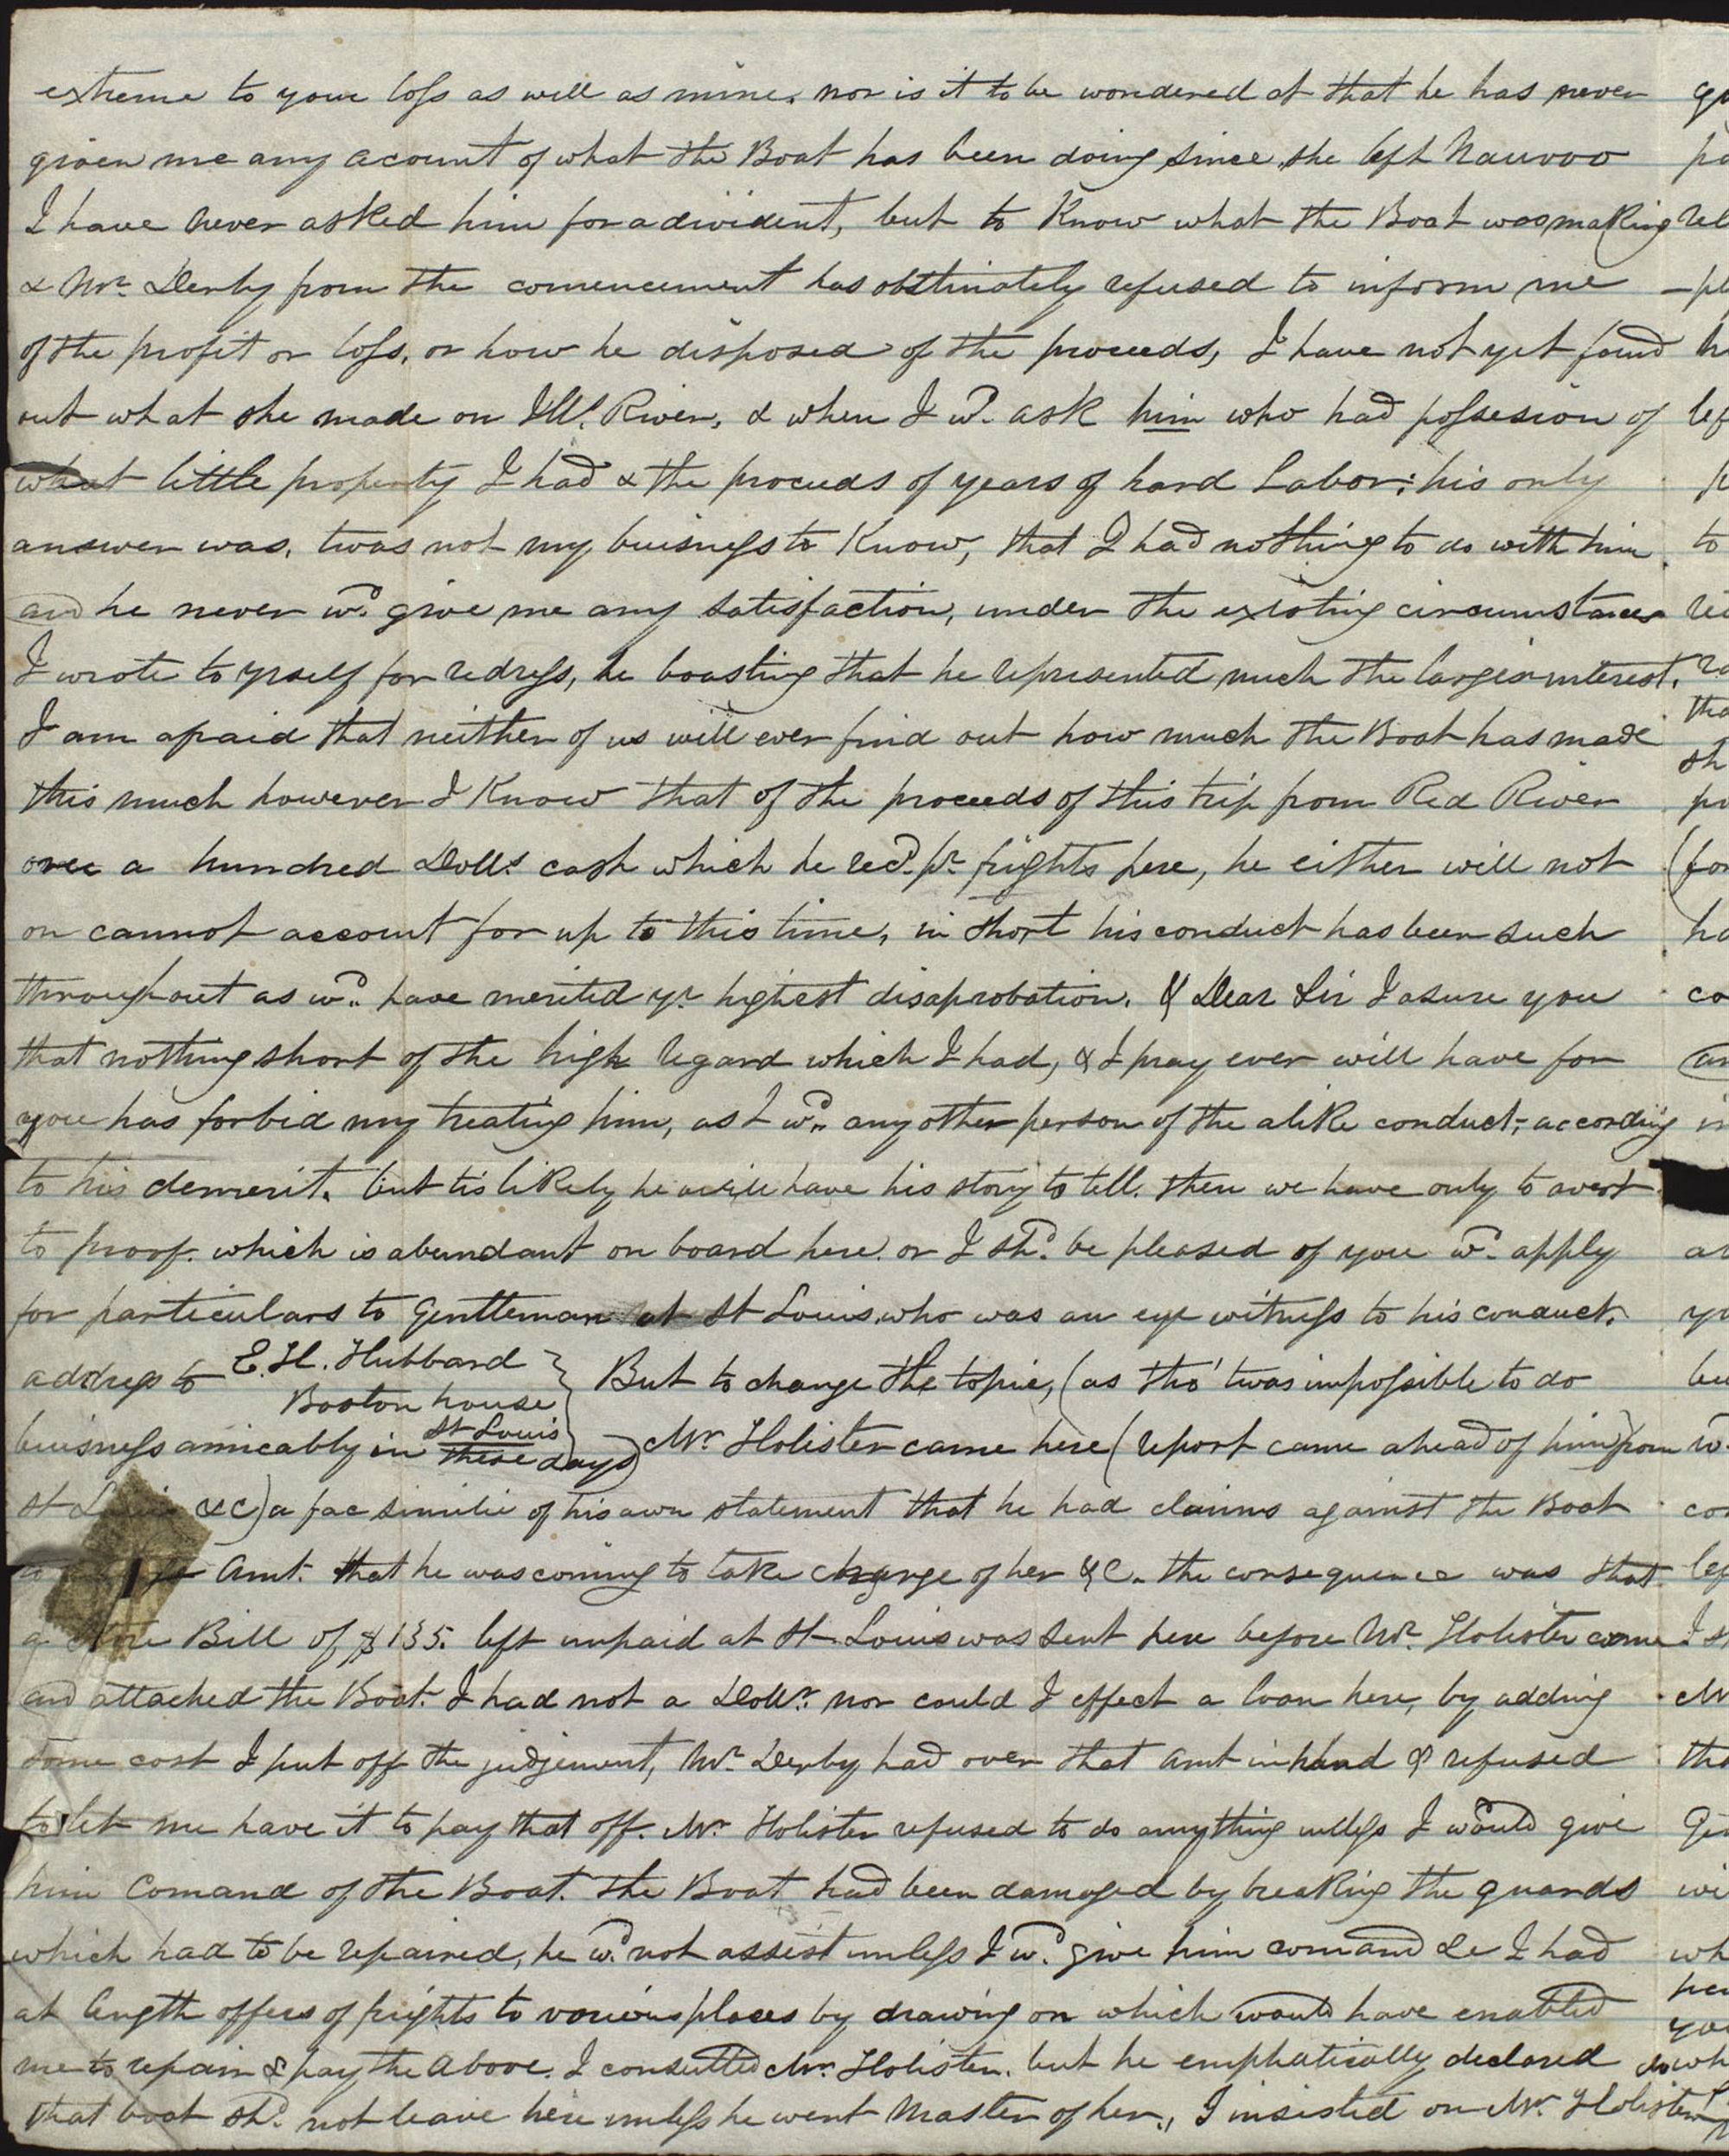 extreme to your loss as well as mine. nor is it to be wondered at that he has never
given me any acount of what the Boat has been doing since she left Nauvoo
I have never asked him for a divident, but to Know what the Boat was making
& Mr. Derby from the comencement has obstinately refused to inform me
of the profit or loss, or how he disposed of the proceeds, I have not yet found
out what she made on Ills. River, & when I wd. ask him who had possesion of
what little property I had & the proceeds of years of hard Labor; his only
answer was, twas not my buisness to Know, that I had nothing to do with him
and he never wd. give me any satisfaction, under the existing circumstances
I wrote to yrself for redress, he boasting that he represented much the larger interest.
I am afraid that neither of us will ever find out how much the Boat has made
this much however I Know that of the proceeds of this trip from Red River
over a hundred Dolls. cash which he recd. pr. frights here, he either will not
or cannot account for up to this time, in short his conduct has been such
throughout as wd. have merited yr. highest disaprobation. & Dear Sir I asure you
that nothing short of the high regard which I had, & I pray ever will have for
you has forbid my treating him, as I wd. any other person of the alike conduct, according
to his demerit. but tis likely he will have his story to tell. then we have only to avert
to proof. which is abundant on board here. or I shd. be pleased if you wd. apply
for particulars to Gentleman at St Louis, who was an eye witness to his conduct.
address to E. H. Hubbard
Boston house
St Louis
But to change the topic, (as tho' twas impossible to do
buisness amicably in these days) Mr Holister came here (report came ahead of him from
St Louis &c) a fac similie of his own statement that he had claims against the Boat
Amt. that he was coming to take charge of her &c. the consequence was that
a Store Bill of $135. left unpaid at St. Louis was sent here before Mr. Holister came
and attached the Boat. I had not a Dollr. nor could I effect a loan here, by adding
some cost I put off the judjement, Mr. Derby had over that amt in hand & refused
to let me have it to pay that off. Mr Holister refused to do anything unless I would give
him Comand of the Boat. The Boat had been damaged by breaking the guards
which had to be repaired, he wd. not assist unless I wd. give him comand &c I had
at length offers of frights to various places by drawing on which would have enabled
me to repair & pay the above. I consulted Mr. Holister. but he emphatically declared
that boat shd. not leave here unless he went Master of her., I insisted on Mr. Holister